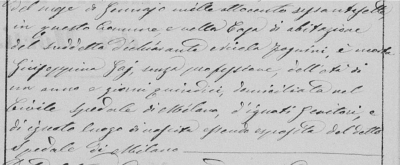 del mese di Gennajo mille ottocento settantasette
in questo Comune, e nella Casa di abitazione
del suddetto dichiarante Nicola Pagnini, è morta
Giuseppina Gaj, senza professione, dell'età di
un anno e giorni quindici, domiciliata nel
Civile Spedale di Milano, d'ignoti Genitori, e
d'ignoto luogo di nascita essendo esposita del detto
Spedale di Milano